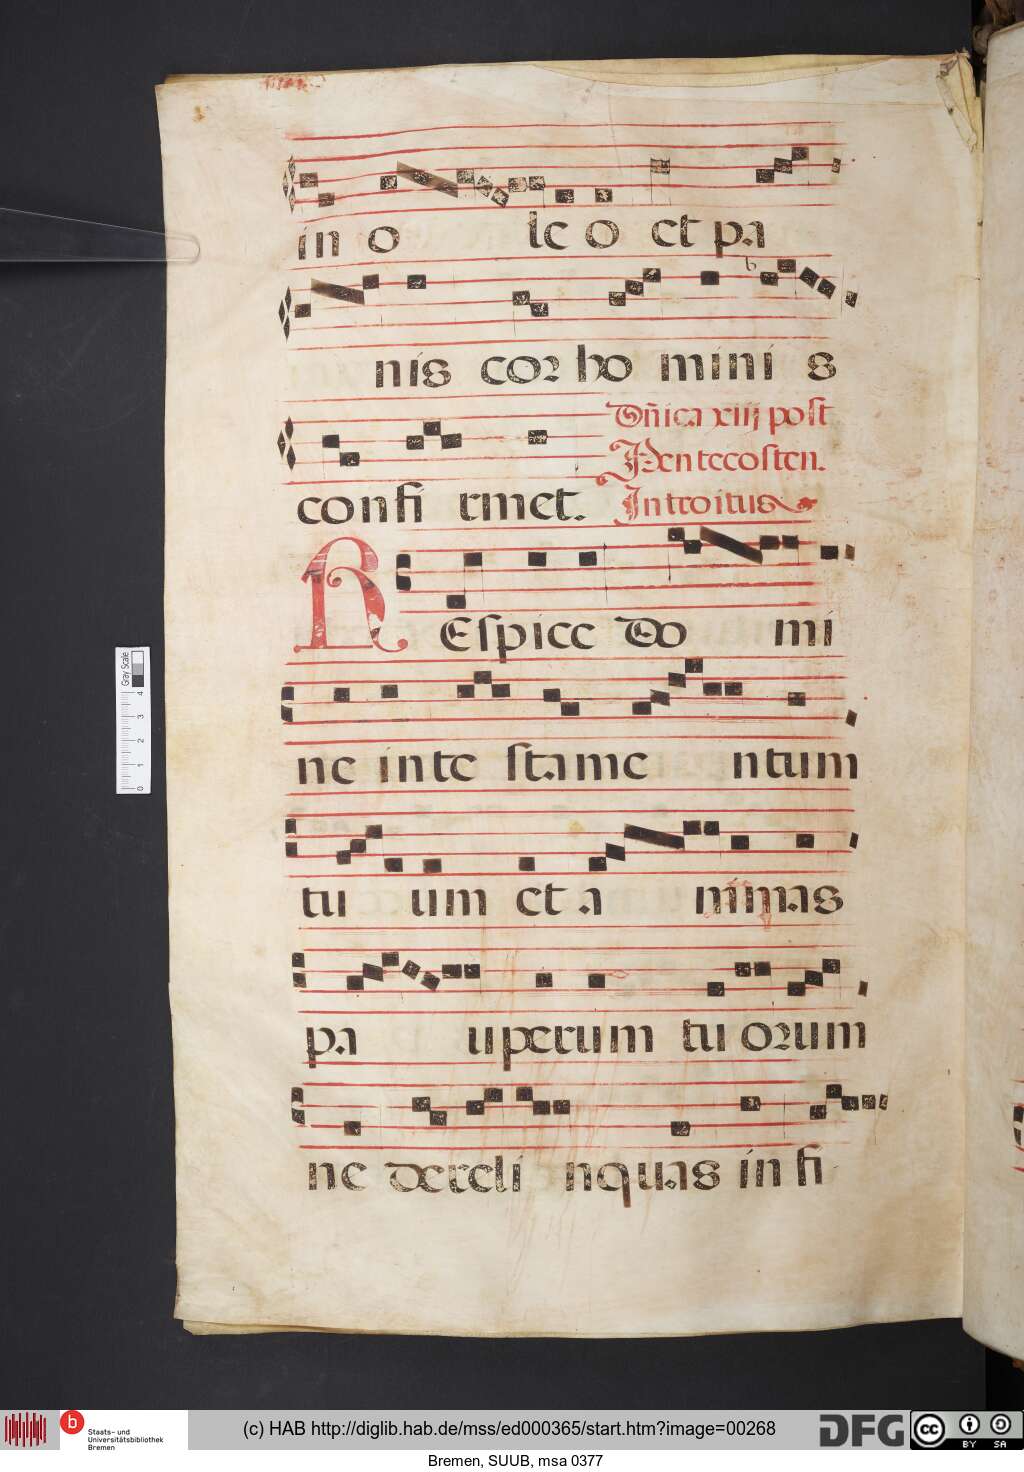 in o le o et pa
nis cor ho mini s
Dñica xiij post
Pentecosten.
confi rmet. Introitus
REspice Do mi
ne in te stame ntum
tu um et a nimas
pa uperum tu orum
ne dereli nquas in fi
Gray Scale
4 3 2 1 0
b Staats- und
Universitätsbibliothek
Bremen
(c) HAB http://diglib.hab.de/mss/ed000365/start.htm?image=00268
DFG
cc BY SA
Bremen, SUUB, msa 0377